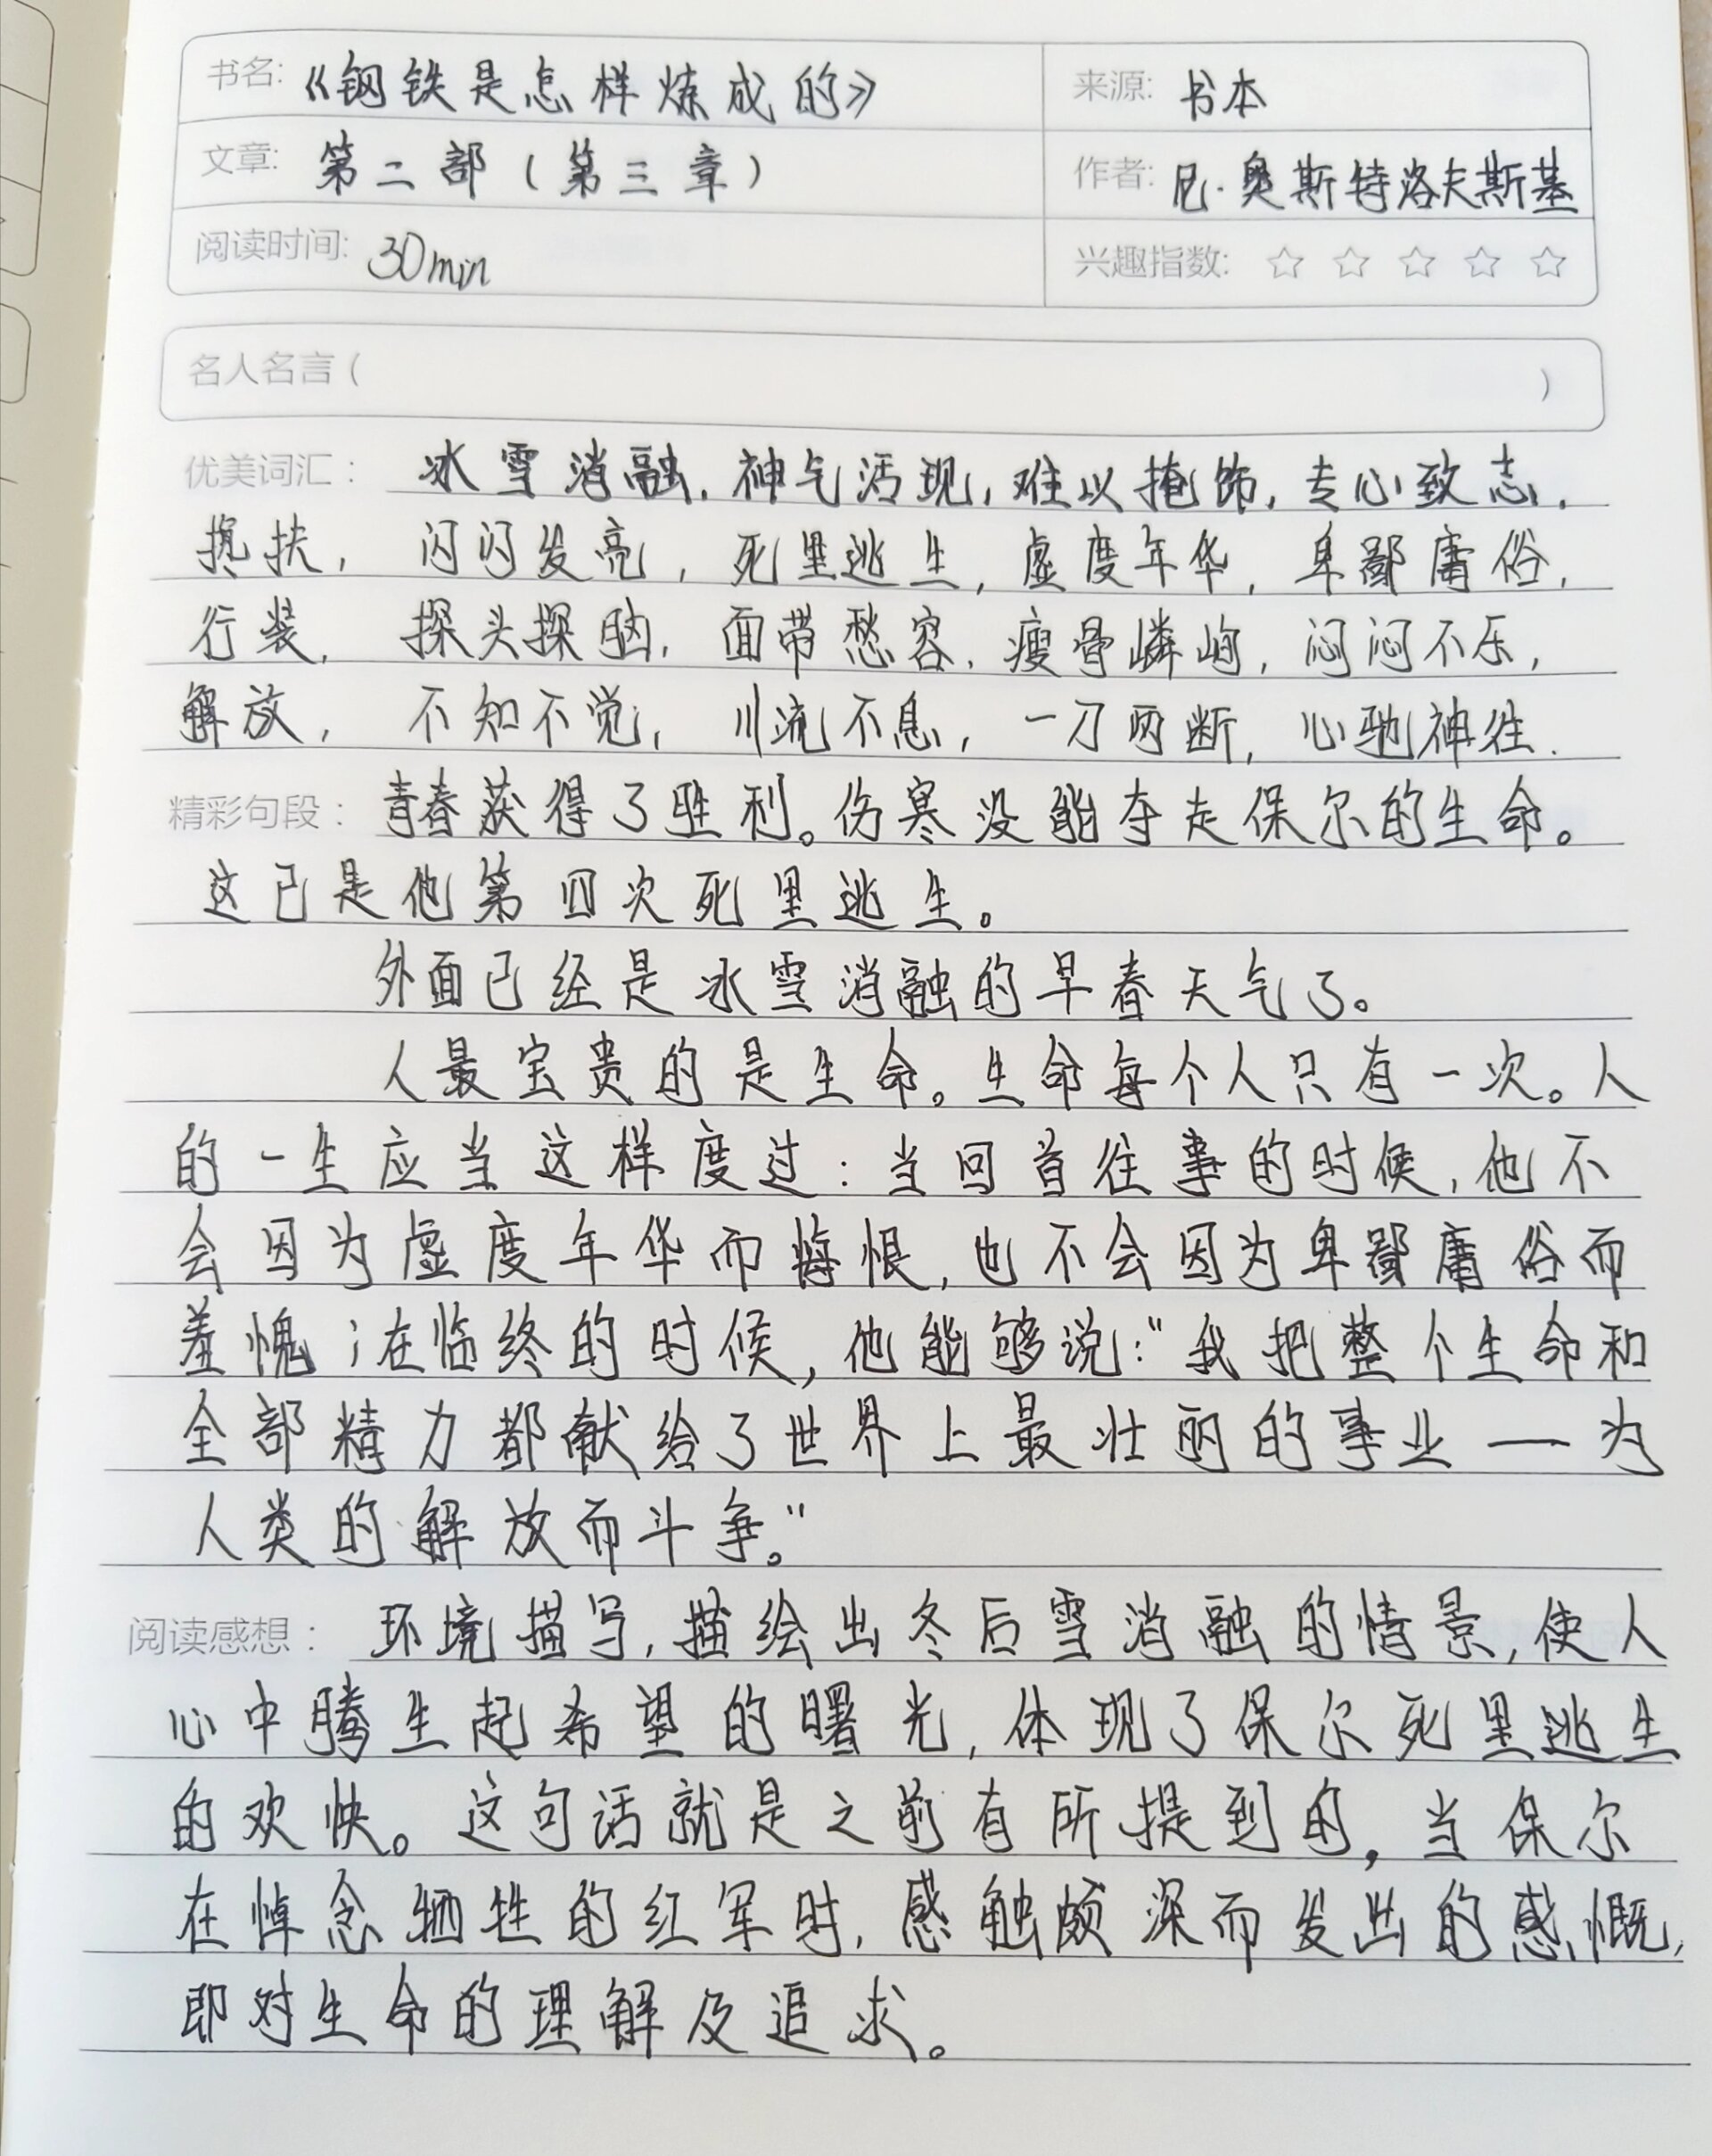 书名: 《钢铁是怎样炼成的》 来源: 书本
文章: 第二部（第三章） 作者: 尼·奥斯特洛夫斯基
阅读时间: 30min 兴趣指数: ☆ ☆ ☆ ☆ ☆
名人名言 ( )
优美词汇： 冰雪消融，神气活现，难以掩饰，专心致志，
搀扶，闪闪发亮，死里逃生，虚度年华，卑鄙庸俗，
行装，探头探脑，面带愁容，瘦骨嶙峋，闷闷不乐，
解放，不知不觉，川流不息，一刀两断，心驰神往．
精彩句段： 青春获得了胜利。伤寒没能夺走保尔的生命。
这已是他第四次死里逃生。
外面已经是冰雪消融的早春天气了。
人最宝贵的是生命。生命每个人只有一次。人
的一生应当这样度过：当回首往事的时候，他不
会因为虚度年华而悔恨，也不会因为卑鄙庸俗而
羞愧；在临终的时候，他能够说：“我把整个生命和
全部精力都献给了世界上最壮丽的事业——为
人类的解放而斗争。”
阅读感想： 环境描写，描绘出冬后雪消融的情景，使人
心中腾生起希望的曙光，体现了保尔死里逃生
的欢快。这句话就是之前有所提到的，当保尔
在悼念牺牲的红军时，感触颇深而发出的感慨，
即对生命的理解及追求。